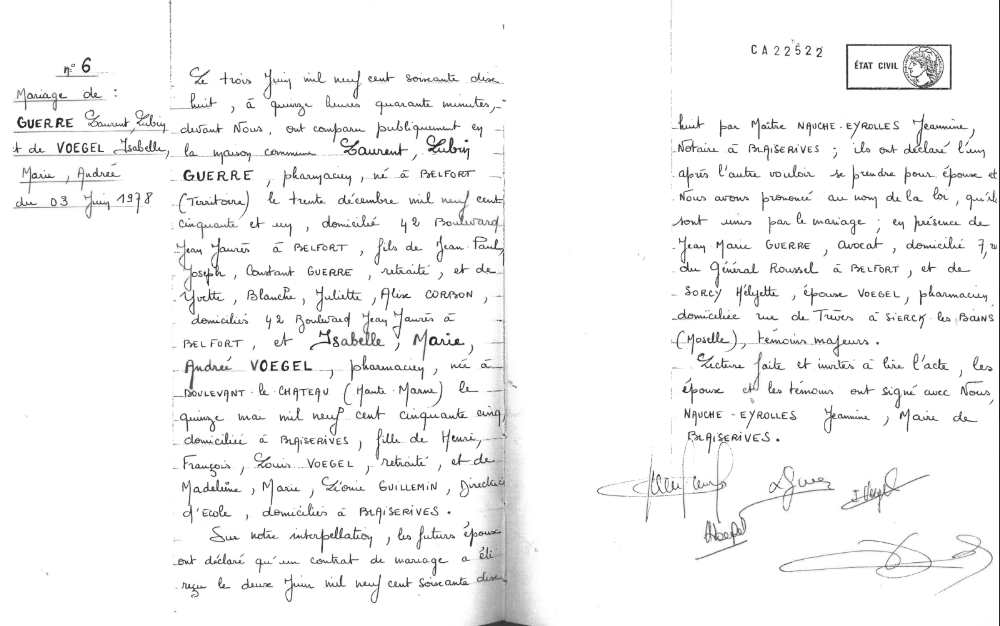 n° 6
Mariage de :
GUERRE Laurent, Lubin
et de VOEGEL Isabelle,
Marie, Andrée
du 03 Juin 1978
Le trois Juin mil neuf cent soixante dix
huit, à quinze heures quarante minutes,
devant Nous, ont comparu publiquement en
la maison commune Laurent, Lubin
GUERRE, pharmacien, né à BELFORT
(Territoire) le trente décembre mil neuf cent
cinquante et un, domicilié 42 Boulevard
Jean Jaurès à BELFORT, fils de Jean-Paul,
Joseph, Constant GUERRE, retraité, et de
Yvette, Blanche, Juliette, Alix CORBON,
domiciliés 42 Boulevard Jean Jaurès à
BELFORT, et Isabelle, Marie,
Andrée VOEGEL, pharmacien, née à
DOULEVANT-le-CHATEAU (Haute-Marne) le
quinze mai mil neuf cent cinquante cinq,
domiciliée à BLAISERIVES, fille de Henri,
François, Louis VOEGEL, retraité, et de
Madeleine, Marie, Léonie GUILLEMIN,
d'Ecole, domiciliés à BLAISERIVES.
Sur notre interpellation, les futurs époux
ont déclaré qu'un contrat de mariage a été
reçu le deux Juin mil neuf cent soixante dix
CA22522
ÉTAT CIVIL
huit par Maître NAUCHE-EYROLLES Jeannine,
Notaire à BLAISERIVES ; ils ont déclaré l'un
après l'autre vouloir se prendre pour époux et
Nous avons prononcé au nom de la loi, qu'ils
sont unis par le mariage ; en présence de
Jean-Marie GUERRE, avocat, domicilié 7,
du Général Roussel à BELFORT, et de
SORCY Hélyette, épouse VOEGEL, pharmacien,
domiciliée rue de Trèves à SIERCK-les-BAINS
(Moselle), témoins majeurs.
Lecture faite et invités à lire l'acte, les
époux et les témoins ont signé avec Nous,
NAUCHE-EYROLLES Jeannine, Maire de
BLAISERIVES.